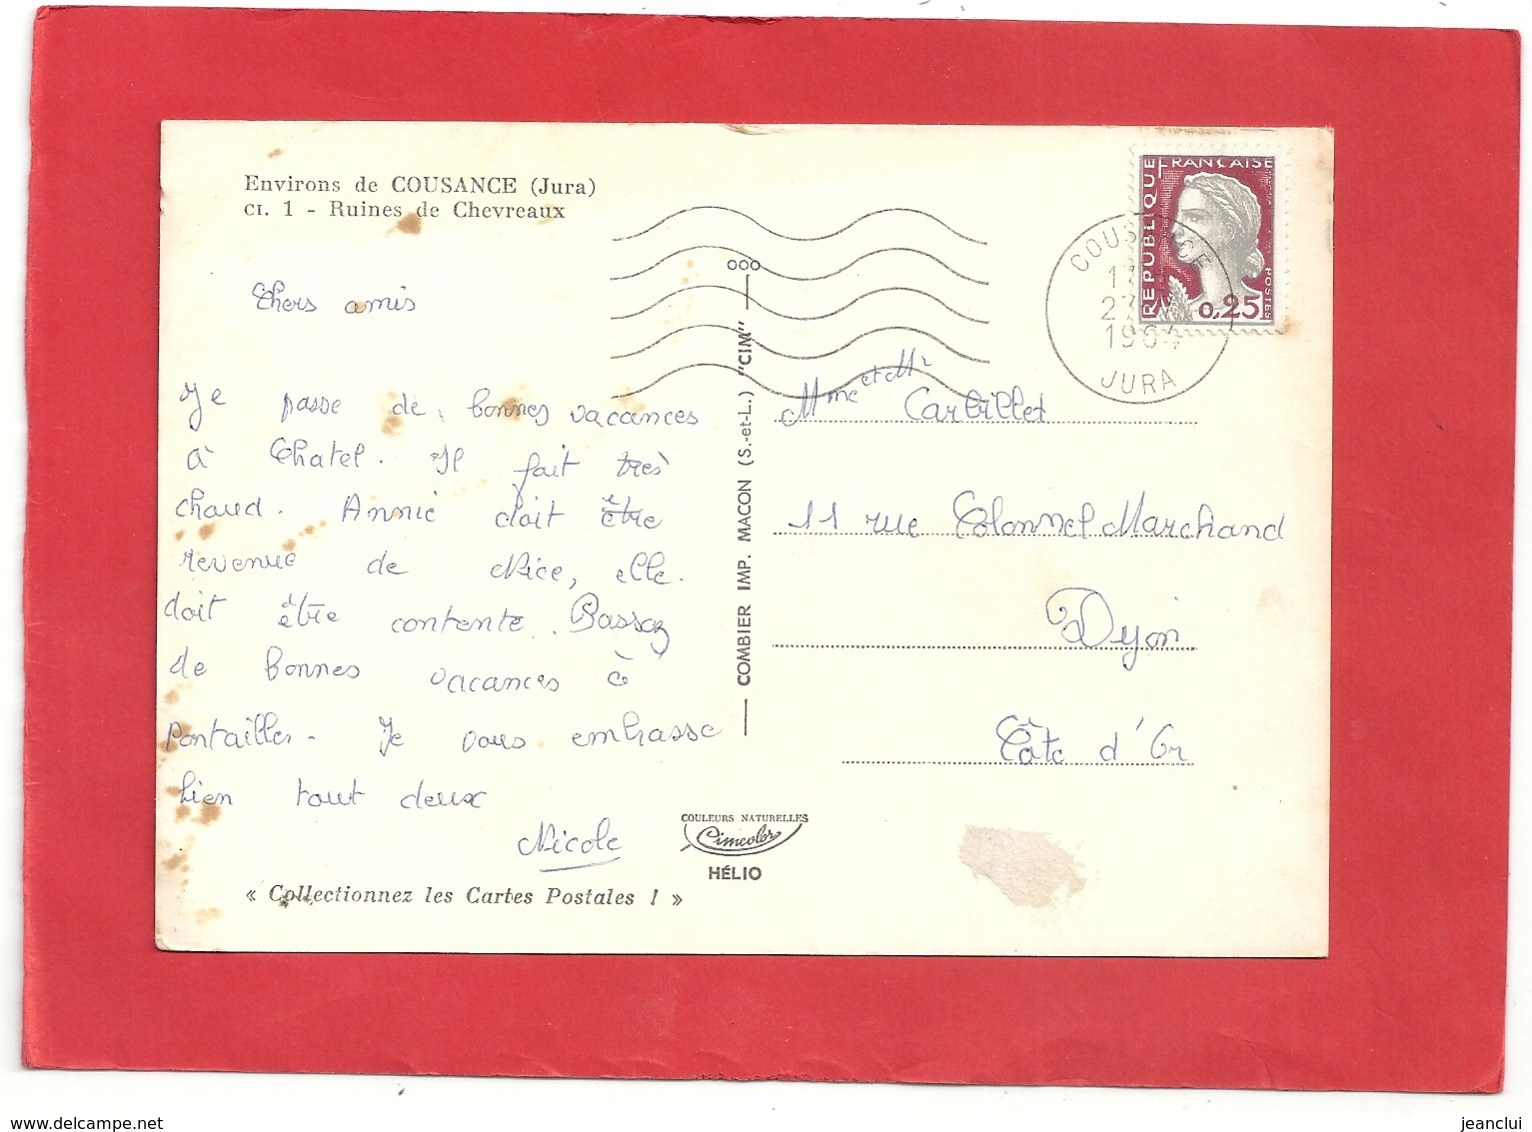 Environs de COUSANCE (Jura)
CI. 1 - Ruines de Chevreaux
Chers amis
Je passe de bonnes vacances
à Chatel. Il fait très
chaud. Annie doit être
revenue de Nice, elle
doit être contente. Passez
de bonnes vacances à
Pontailler. Je vous embrasse
bien tout deux
Nicole
« Collectionnez les Cartes Postales ! »
COULEURS NATURELLES
Cimcolor
HÉLIO
COMBIER IMP. MACON (S.-et-L.) "CIM"
REPUBLIQUE FRANÇAISE
POSTES
0,25
COUSANCE
1964
JURA
Mme et Mr Carbillet
11 rue Colonnel Marchand
Dijon
Côte d'Or
www.delcampe.net
jeanclui